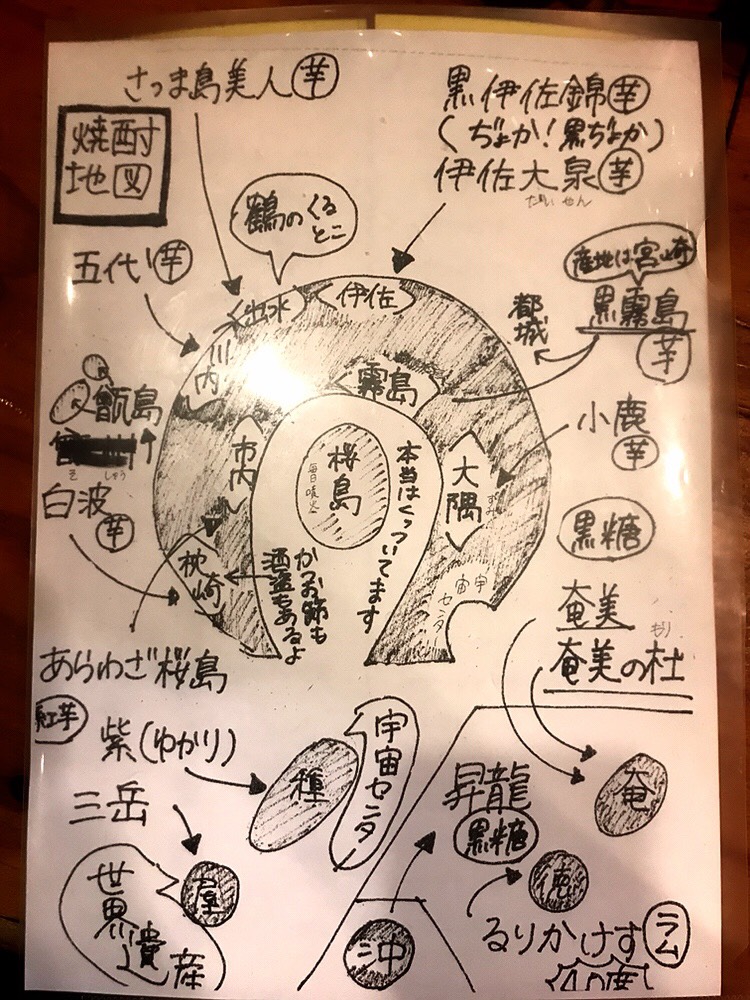 さつま島美人 芋
焼酎
地図
黒伊佐錦 芋
(ぢょか！黒ぢょか)
伊佐大泉 芋
たい せん
鶴のくる
とこ
五代 芋
出水
伊佐
産地は宮崎
黒霧島
芋
都
城
川
内
霧島
甑島
白波
芋
市
内
桜
島
毎日噴火
本当はくっついてます
大
隅
小鹿
芋
黒糖
奄美
もり
奄美の杜
枕
崎
かつお節も
酒盗もあるよ
宇
宙
センタ
あらわざ桜島
紅芋
紫(ゆかり)
種
宇宙センタ
三岳
屋
世
界
遺
産
昇龍
黒糖
奄
徳
沖
るりかけす ラム
40度